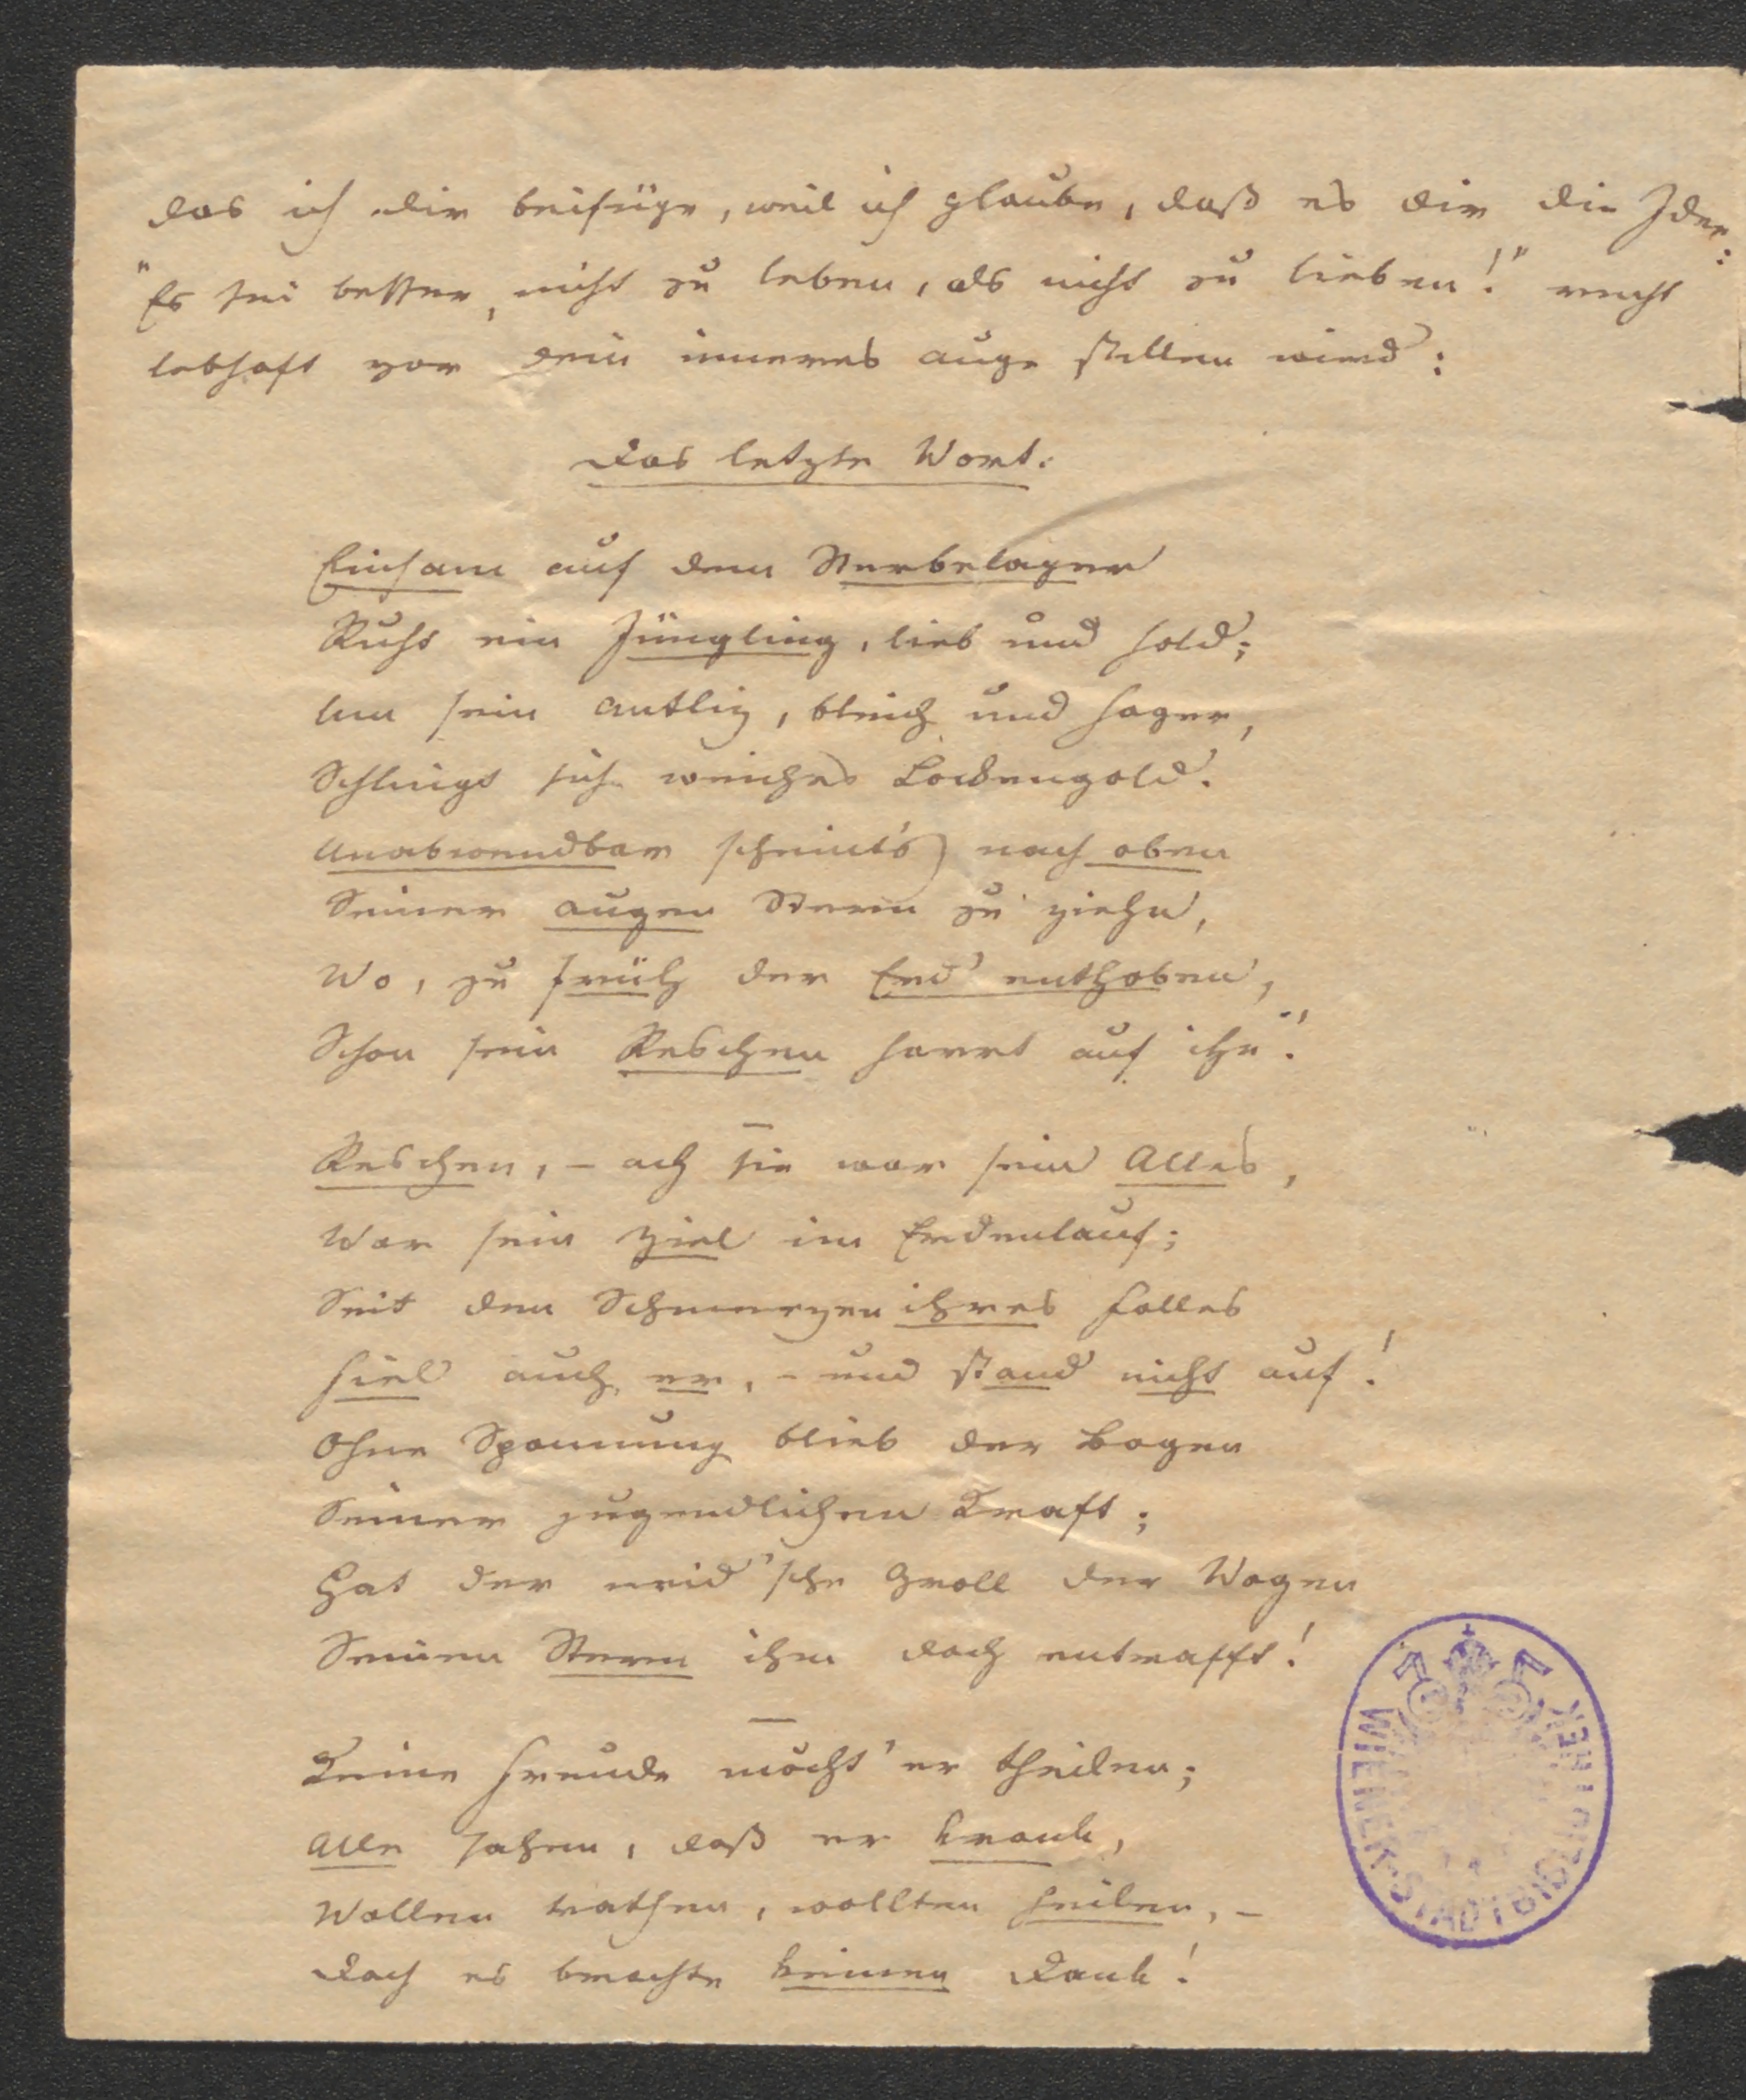 das ich dir beifüge, weil ich glaube, daß es dir die Idee:
"Es sei besser, nicht zu leben, als nicht zu lieben!" recht
lebhaft vor dein inneres auge stellen wird:
Das letzte Wort.
Einsam auf dem Sterbelager
Ruht ein Jüngling, lieb und hold;
Um sein antliz, bleich und hager,
Schlingt sich weiches Lockengold.
Unabwendbar scheint's nach oben
Seiner augen Stern zu ziehn,
Wo, zu früh der Erd' enthoben,
Schon sein Röschen harrt auf ihn!
Röschen, – ach sie war sein Alles,
War sein Ziel im Erdenlauf;
Seit den Schmerzen ihres Falles
Fiel auch er, – und stand nicht auf!
Ohne Spannung blieb der Bogen
Seiner jugendlichen Kraft;
Hat der neid'sche Groll der Wogen
Seinen Stern ihm doch entrafft!
Keine Freude mocht' er theilen;
Alle sahen, daß er krank,
Wollten rathen, wollten heilen, –
Doch es brachte keinen Dank!
WIENER STADTBIBLIOTHEK